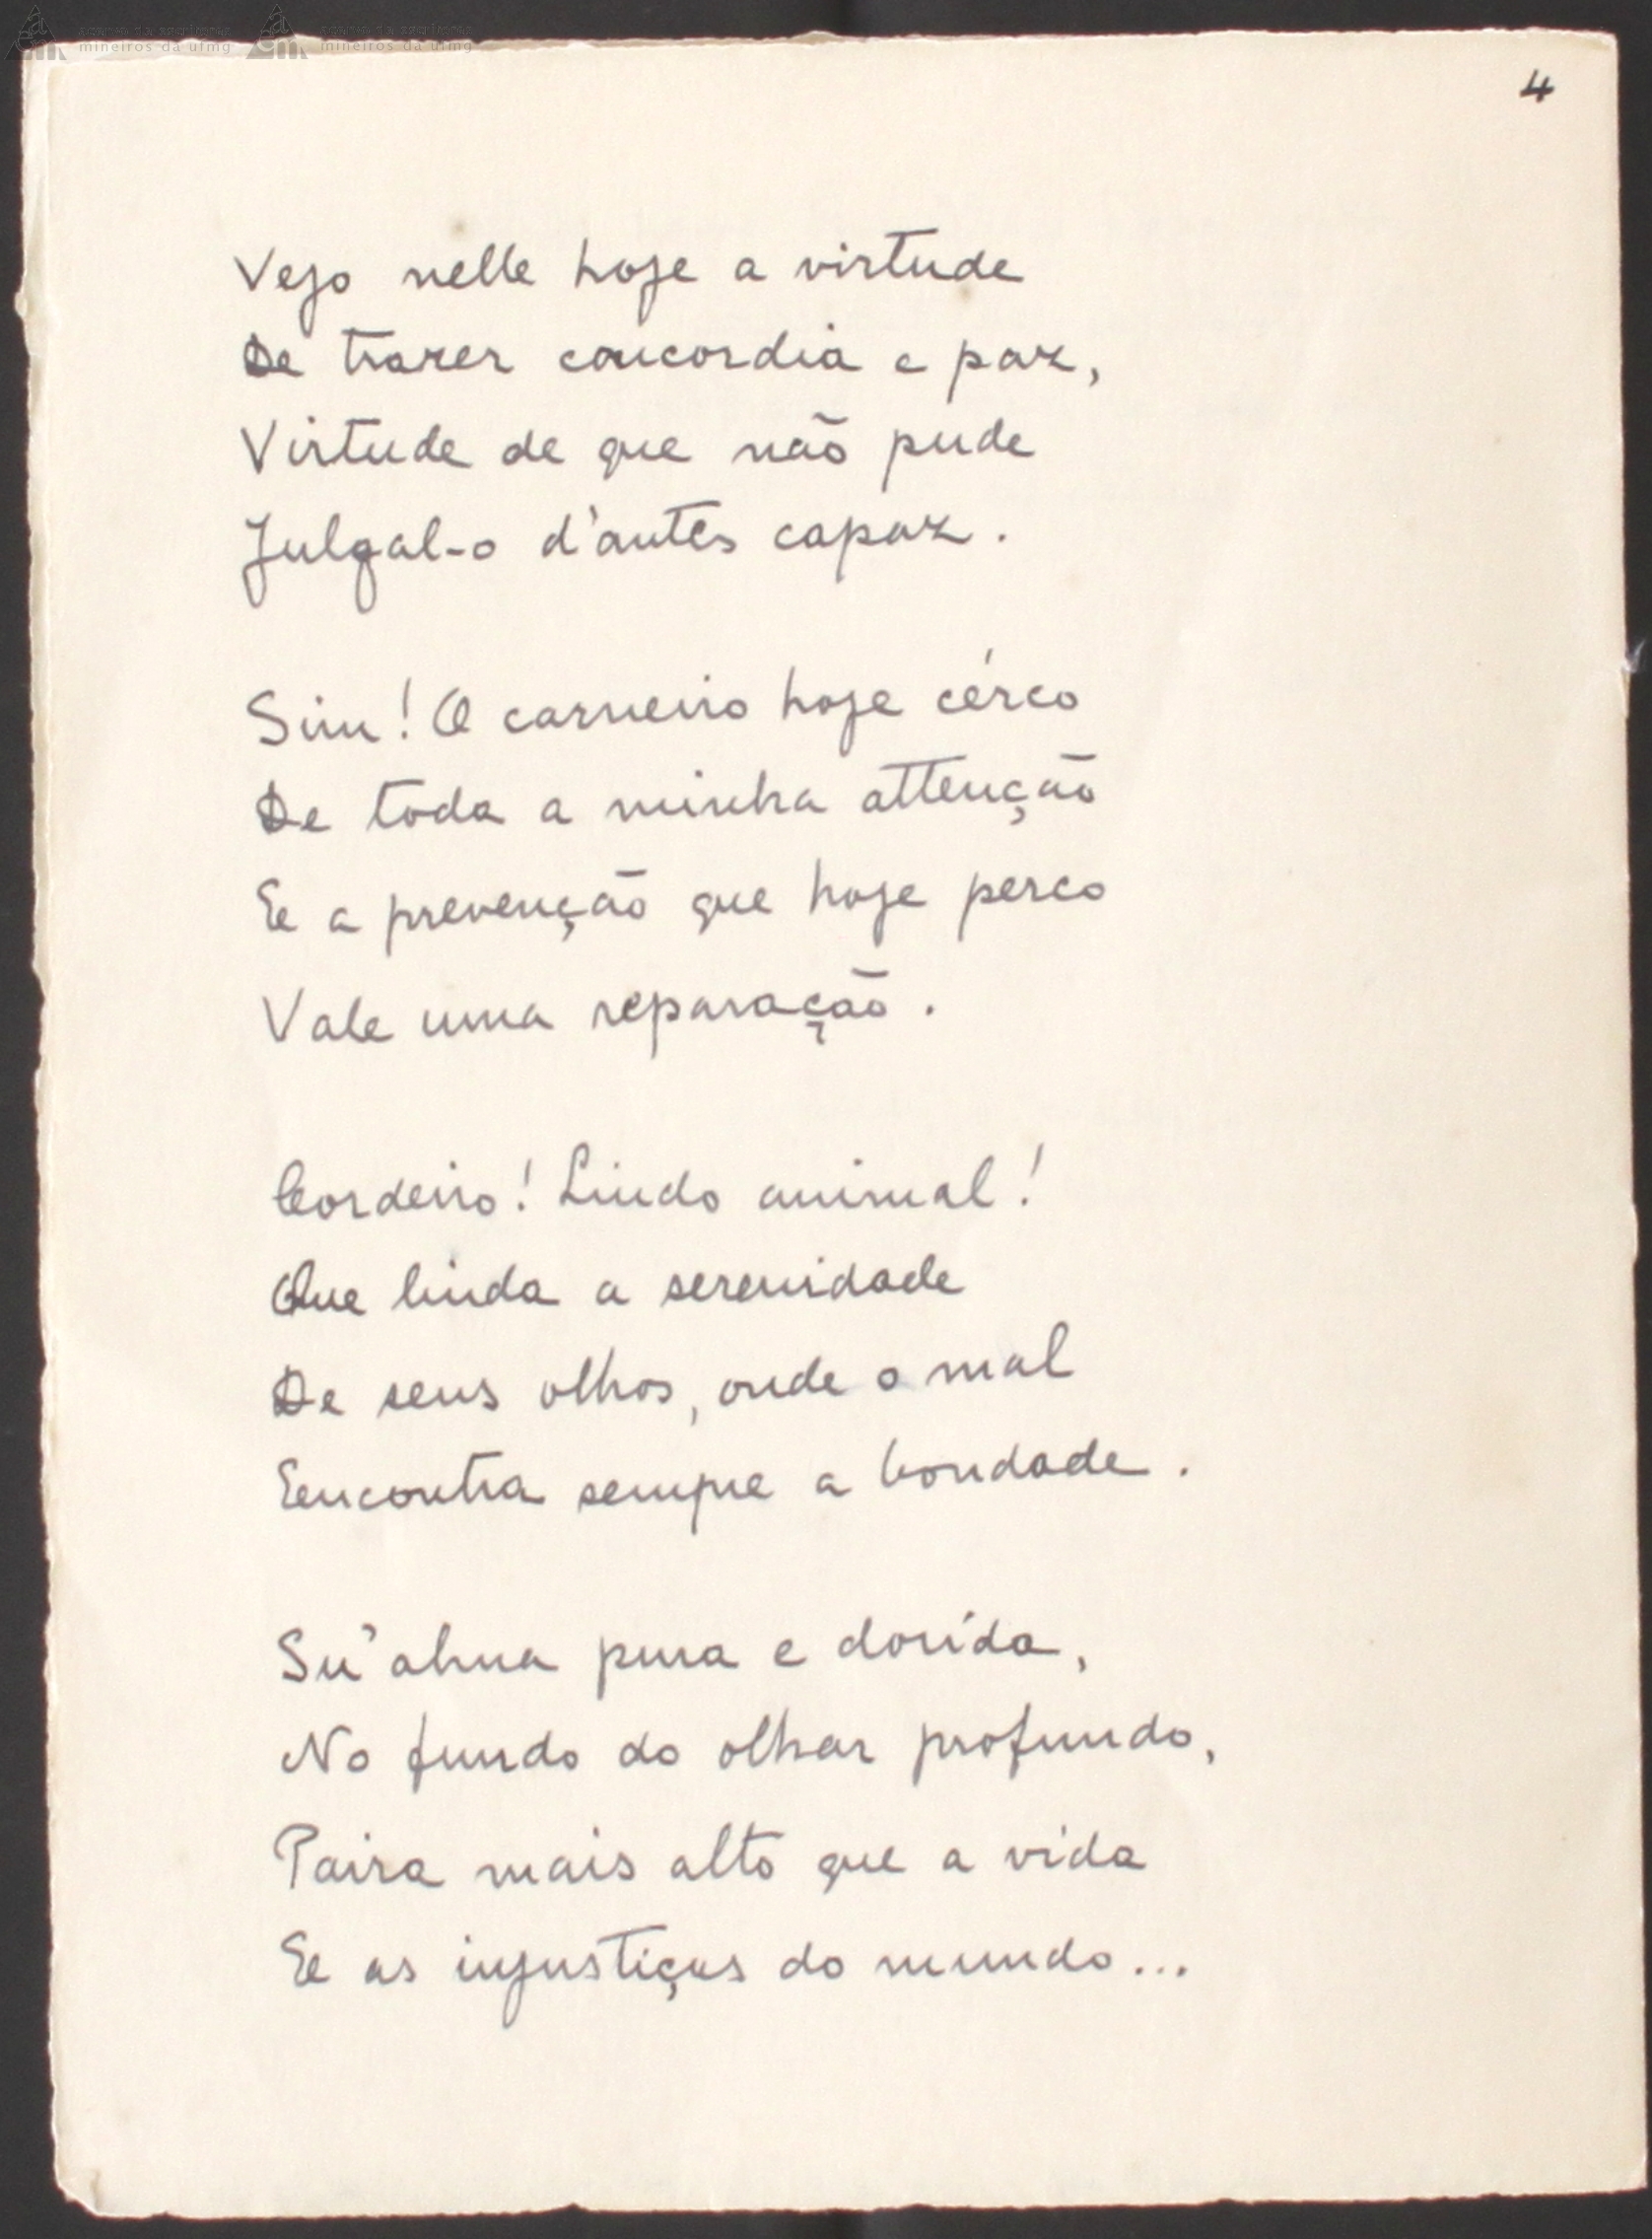 acervo de escritores
mineiros da ufmg
acervo de escritores
mineiros da ufmg
4
Vejo nelle hoje a virtude
De trazer concordia e paz,
Virtude de que não pude
Julgal-o d'antes capaz.
Sim! O carneiro hoje cérco
De toda a minha attenção
E a prevenção que hoje perco
Vale uma reparação.
Cordeiro! Lindo animal!
Que linda a serenidade
De seus olhos, onde o mal
Encontra sempre a bondade.
Su'alma pura e dorida,
No fundo do olhar profundo,
Paira mais alto que a vida
E as injustiças do mundo...